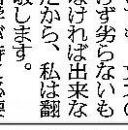 らず劣らないも
なければ出来な
だから、私は翻
敬します。